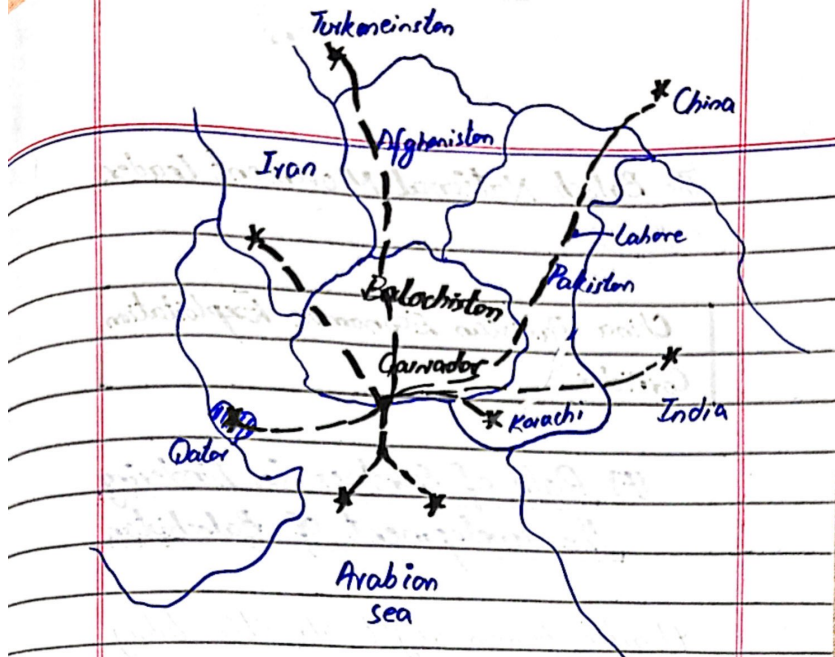 Turkmeinstan
China
Afghanistan
Iran
Lahore
Pakistan
Balochistan
Gawador
India
Karachi
Qatar
Arabian
sea